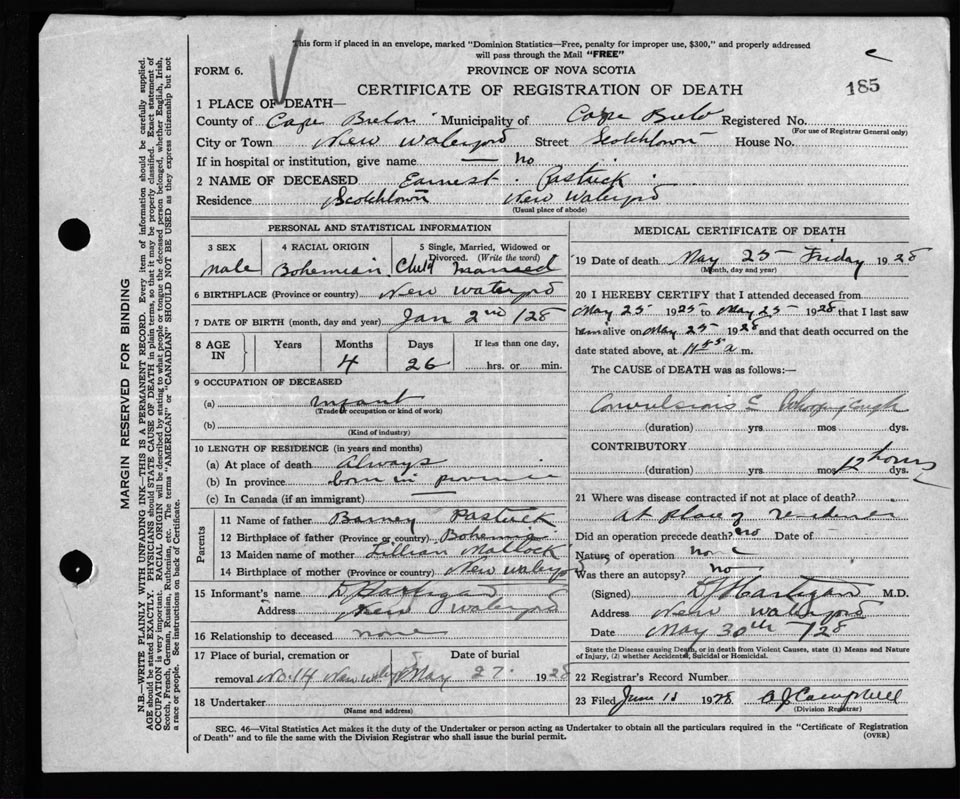 This form if placed in an envelope, marked "Dominion Statistics—Free, penalty for improper use, $300," and properly addressed
will pass through the Mail "FREE"
FORM 6.
PROVINCE OF NOVA SCOTIA
CERTIFICATE OF REGISTRATION OF DEATH
185
1 PLACE OF DEATH—
County of Cape Breton Municipality of Cape Breto Registered No.
(For use of Registrar General only)
City or Town New Waterford Street Scotchtown House No.
If in hospital or institution, give name — No
2 NAME OF DECEASED Earnest Pastuck
Residence Scotchtown New Waterford
(Usual place of abode)
PERSONAL AND STATISTICAL INFORMATION
3 SEX 4 RACIAL ORIGIN 5 Single, Married, Widowed or
Divorced. (Write the word)
Male Bohemian Child
6 BIRTHPLACE (Province or country) New Waterford
7 DATE OF BIRTH (month, day and year) Jan 2nd /28
8 AGE IN Years Months Days If less than one day,
4 26 hrs. or min.
9 OCCUPATION OF DECEASED
(a) Infant
(Trade or occupation or kind of work)
(b)
(Kind of industry)
10 LENGTH OF RESIDENCE (in years and months)
(a) At place of death Always
(b) In province born in province
(c) In Canada (if an immigrant) —
Parents
11 Name of father Barney Pastuck
12 Birthplace of father (Province or country) Bohemia
13 Maiden name of mother Lillian Mallock
14 Birthplace of mother (Province or country) New Waterford
15 Informant's name D Hartigan
Address New Waterford
16 Relationship to deceased none
17 Place of burial, cremation or Date of burial
removal No. 14 New Waterford May 27 1928
18 Undertaker
(Name and address)
MEDICAL CERTIFICATE OF DEATH
19 Date of death May 25 Friday 1928
(Month, day and year)
20 I HEREBY CERTIFY that I attended deceased from
May 25 1925 to May 25 1928 that I last saw
him alive on May 25 1928 and that death occurred on the
date stated above, at 1155 a m.
The CAUSE of DEATH was as follows:—
Convulsions c
(duration) yrs. mos dys.
CONTRIBUTORY
12 hours
(duration) yrs. mos dys.
21 Where was disease contracted if not at place of death?
At place of residence
Did an operation precede death? no Date of
Nature of operation none
Was there an autopsy? no
(Signed) D Hartigan M.D.
Address New Waterford
Date May 30th /28
State the Disease causing Death, or in death from Violent Causes, state (1) Means and Nature
of Injury, (2) whether Accidental, Suicidal or Homicidal.
22 Registrar's Record Number
23 Filed June 1928 Campbell
(Division Registrar)
SEC. 46—Vital Statistics Act makes it the duty of the Undertaker or person acting as Undertaker to obtain all the particulars required in the "Certificate of Registration
of Death" and to file the same with the Division Registrar who shall issue the burial permit.
(OVER)
MARGIN RESERVED FOR BINDING
N.B.—WRITE PLAINLY WITH UNFADING INK—THIS IS A PERMANENT RECORD. Every item of information should be carefully supplied.
AGE should be stated EXACTLY. PHYSICIANS should STATE CAUSE OF DEATH in plain terms, so that it may be properly classified. Exact statement of
OCCUPATION is very important. RACIAL ORIGIN will be described by stating to what people or tongue the deceased person belonged, whether English, Irish,
Scotch, French, German, Russian, Ruthenian, etc. The terms "AMERICAN" or "CANADIAN" SHOULD NOT BE USED as they express citizenship but not
a race or people. See instructions on back of Certificate.